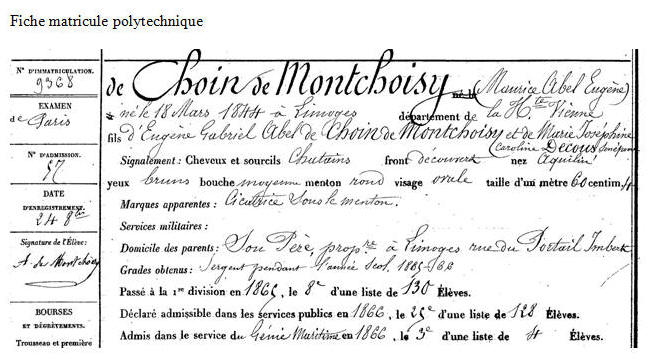 Fiche matricule polytechnique
N° D'IMMATRICULATION.
9368
EXAMEN
de Paris
N° D'ADMISSION.
57
DATE
D'ENREGISTREMENT.
24 8bre
Signature de l'Élève:
A. de Montchoisy
BOURSES
ET DÉGRÈVEMENTS.
Trousseau et première
de Choin de Montchoisy (Maurice Abel Eugène)
né le 18 Mars 1844 à Limoges département de la Hte Vienne
fils d'Eugène Gabriel Abel de Choin de Montchoisy et de Marie Joséphine
Caroline Decous
Signalement: Cheveux et sourcils Chatains front découvert nez Aquilin
yeux bruns bouche moyenne menton rond visage ovale taille d'un mètre 60 centim.
Marques apparentes: Cicatrice sous le menton.
Services militaires:
Domicile des parents: Son Père, propre à Limoges rue du Portail Imbert
Grades obtenus: Sergent pendant l'année Scol. 1865-166
Passé à la 1re division en 1865, le 8e d'une liste de 130 Élèves.
Déclaré admissible dans les services publics en 1866, le 25e d'une liste de 128 Élèves.
Admis dans le service du Génie Maritime en 1866, le 3e d'une liste de 4 Élèves.